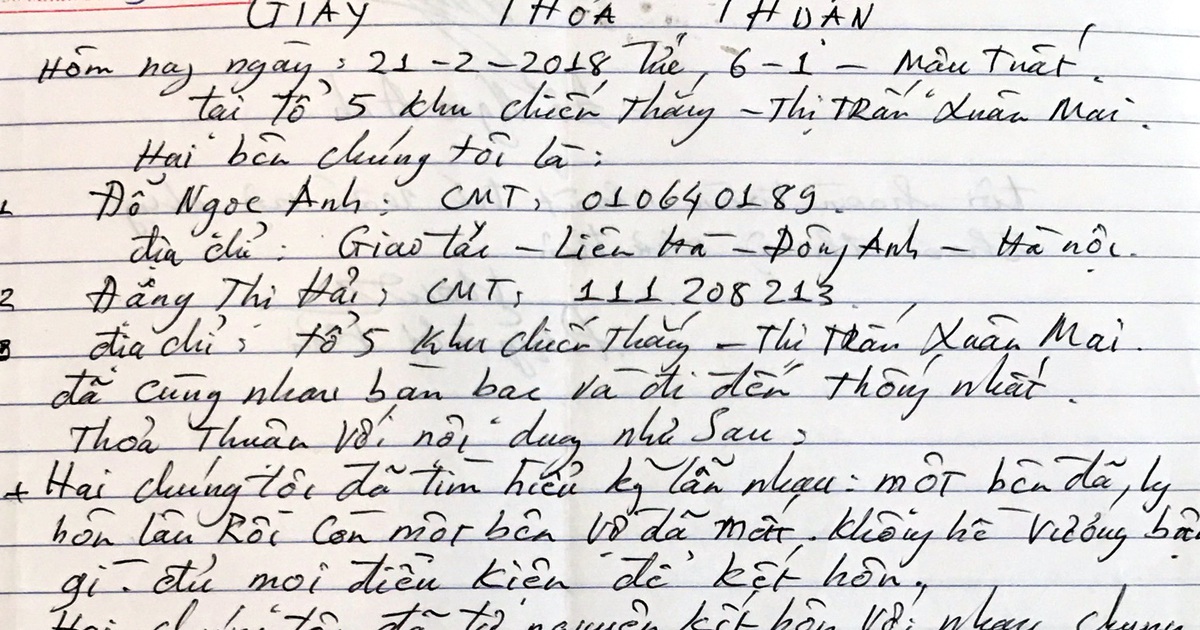 GIẤY THỎA THUẬN
Hôm nay ngày: 21-2-2018 Tức, 6-1-Mậu Tuất.
tại tổ 5 khu chiến Thắng - Thị Trấn Xuân Mai.
Hai bên chúng tôi là:
1 Đỗ Ngọc Anh: CMT, 010640189
địa chỉ: Giao Tác - Liên Hà - Đông Anh - Hà nội.
2 Đặng Thị Hải, CMT, 111 208213
địa chỉ: tổ 5 khu chiến Thắng - Thị Trấn Xuân Mai.
đã cùng nhau bàn bạc và đi đến thống nhất.
Thoả Thuận Với nội dung như Sau:
+ Hai chúng tôi đã tìm hiểu kỹ lẫn nhau: một bên đã, ly
hôn lâu Rồi Còn một bên Vợ đã mất. Không hề Vướng bận
gì. đủ mọi điều kiện để kết hôn.
Hai chúng tôi đã tự nguyện kết hôn Với nhau chung